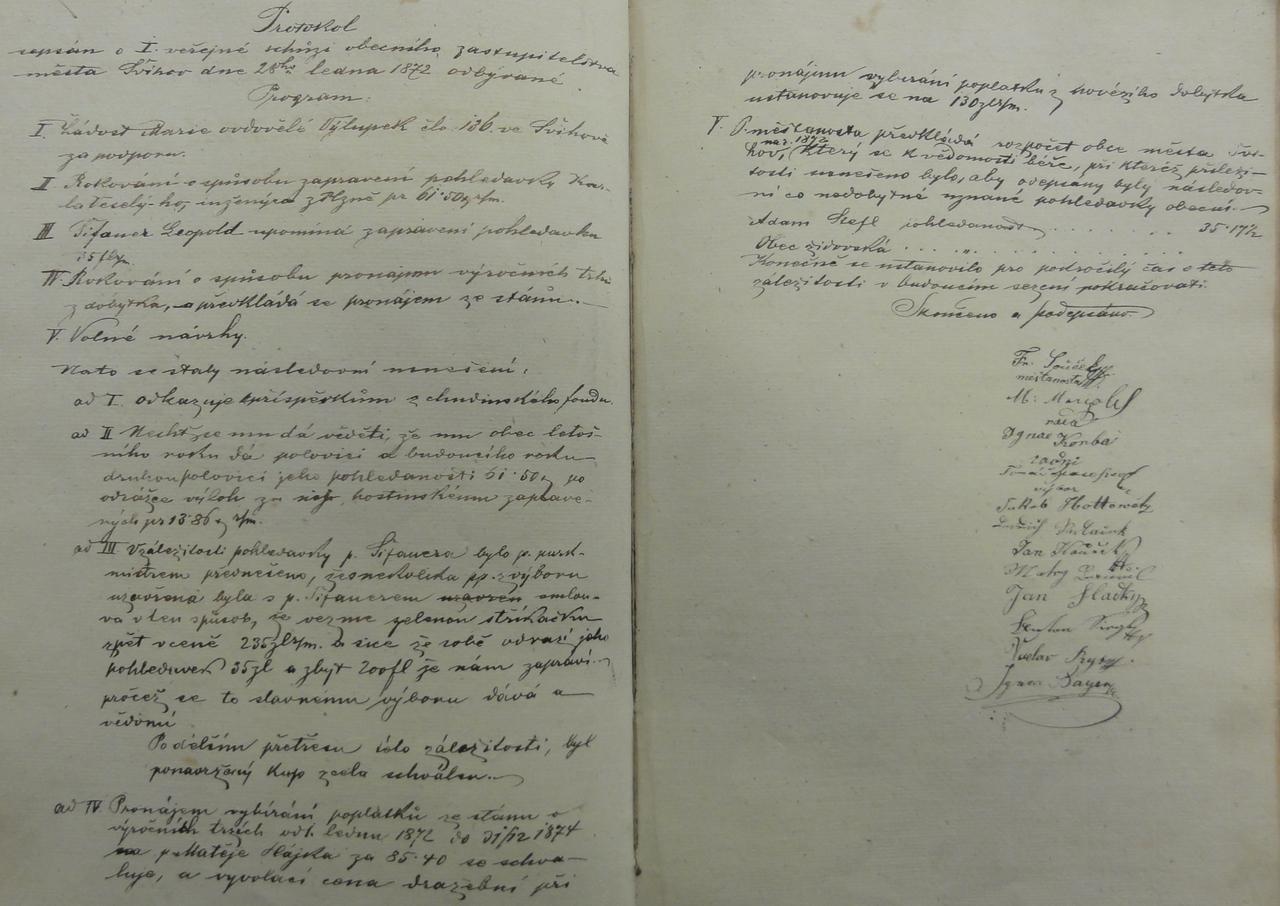 Protokol
sepsán o I. veřejné schůzi obecního zastupitelstva
města Švihov dne 28ho ledna 1872 odbývané
Program:
I. Žádost Marie ovdovělé Výlupek čís. 136 ve Švihově
za podporu.
II Rokování o spůsobu zapravení pohledávky Kar-
la Veselý-ho, inženýra z Plzně pr 61·50 kr r/m.
III Tifauer Leopold upomíná zapravení pohledávku
35 fl r/m
IV Rokování o spůsobu pronájmu výročních trhů
z dobytka, a předkládá se pronájem ze stánů.
V. Volné návrhy.
Nato se staly následovní usnešení:
ad I. odkazuje k příspěvkům z chudinského fondu.
ad II Nechť se mu dá věděti, že mu obec letoš-
ního roku dá polovici a budoucího roku
druhou polovici jeho pohledanosti 61·50 kr po
odrážce výloh za něj, hostinskému zaprave-
ných pr 13·86 kr r/m.
ad III V záležitosti pohledávky p. Tifauera bylo p. purk-
mistrem přednešeno, že několika pp. z výboru
uzavřená byla s p. Tifauerem uzavřen smlou-
va v ten spůsob, že vezme zelenou stříkačku
zpět v ceně 235 zl r/m. a sice že sobě odrazí jeho
pohledávek 35 zl a zbyt 200 fl že nám zapraví.
pročež se to slavnému výboru dává u
vědomí
Po delším přetřesu této záležitosti, byl
ponavržený kup zcela schválen.
ad IV Pronájem vybírání poplatků ze stánu o
výročních trzích od 1. ledna 1872 do 31/12 1874
na p. Matěje Hájka za 85·40 se schva-
luje, a vyvolací cena dražební při
pronájmu vybírání poplatků z hovězího dobytka
ustanovuje se na 130 zl r/m.
V. P. měšťanosta předkládá rozpočet obce města Švi-
na r. 1872
hov, který se k vědomosti béře, při kteréž příleži-
tosti usnešeno bylo, aby odepsány byly následov-
ní co nedobytné uznané pohledávky obecní.
Adam Stefl pohledanost . . . . . . . 35·17½
Obec židovská . . . „ . . . . . . . .
Konečně se ustanovilo pro pokročilý čas o této
záležitosti v budoucím sezení pokračovati.
Skončeno a podepsáno
Fr. Souček
měšťanosta
M.
rada
Ignac Korba
radní
výbor
Jakub Hottowetz
Jan
Matěj
Jan Hladký
Václav
Ignac Bayer